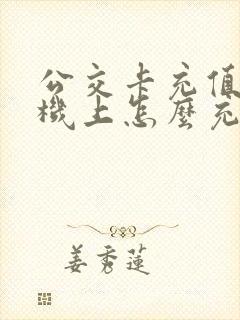 公交卡充值
機上怎麼充
姜秀蓮